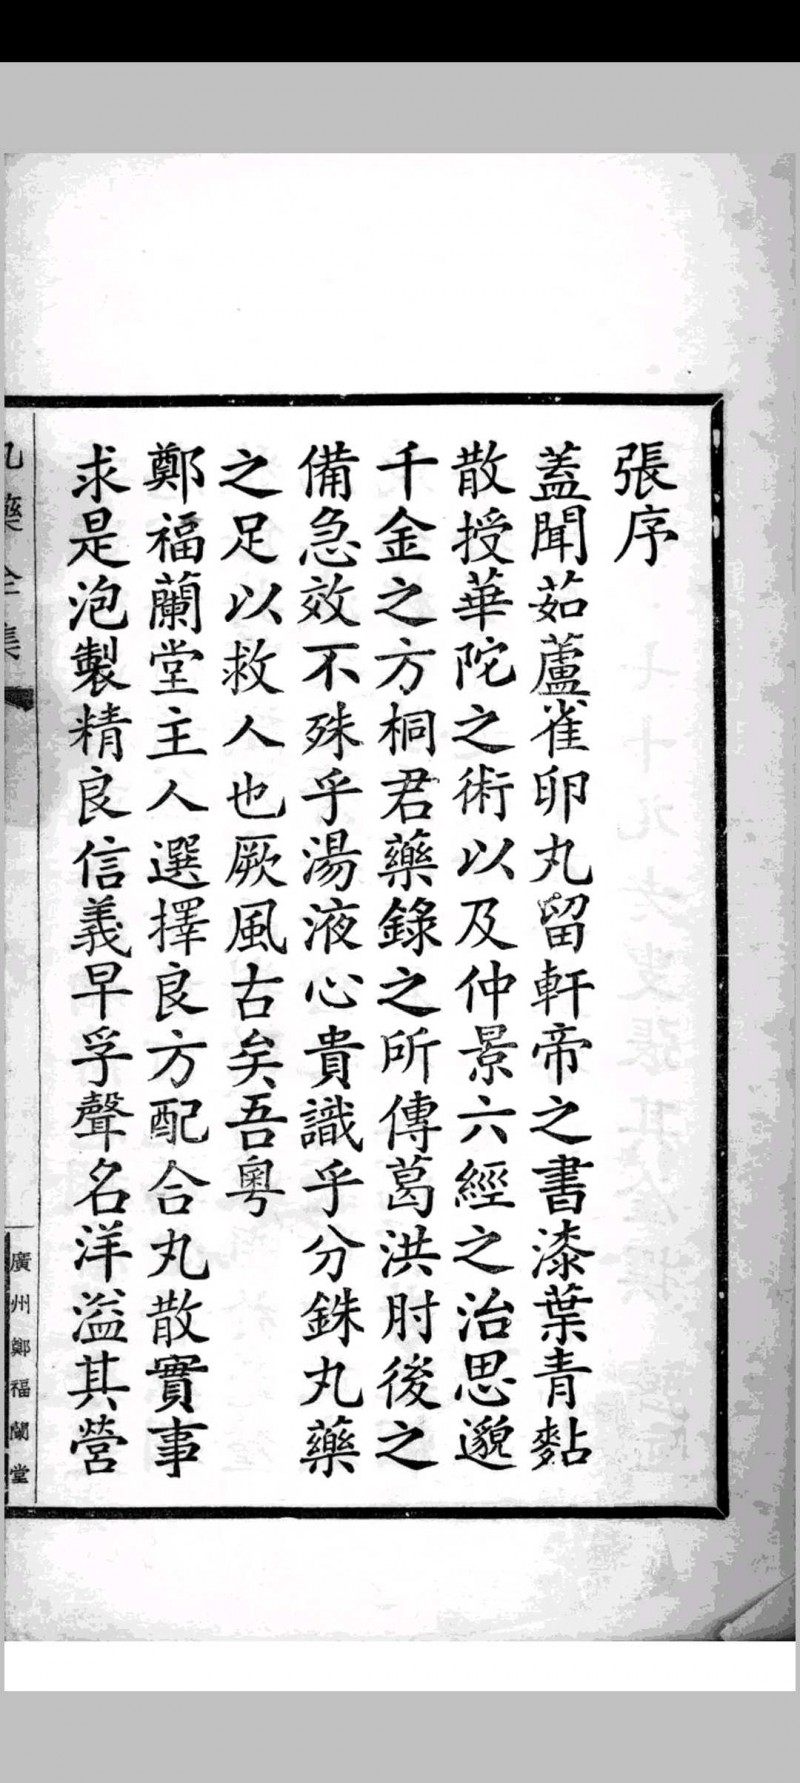 張序
蓋聞茹藘雀卵丸留軒帝之書漆葉青黏
散授華陀之術以及仲景六經之治思邈
千金之方桐君藥錄之所傳葛洪肘後之
備急效不殊乎湯液心貴識乎分銖丸藥
之足以救人也厥風古矣吾粵
鄭福蘭堂主人選擇良方配合丸散實事
求是泡製精良信義早孚聲名洋溢其營
丸藥全集
廣州鄭福蘭堂